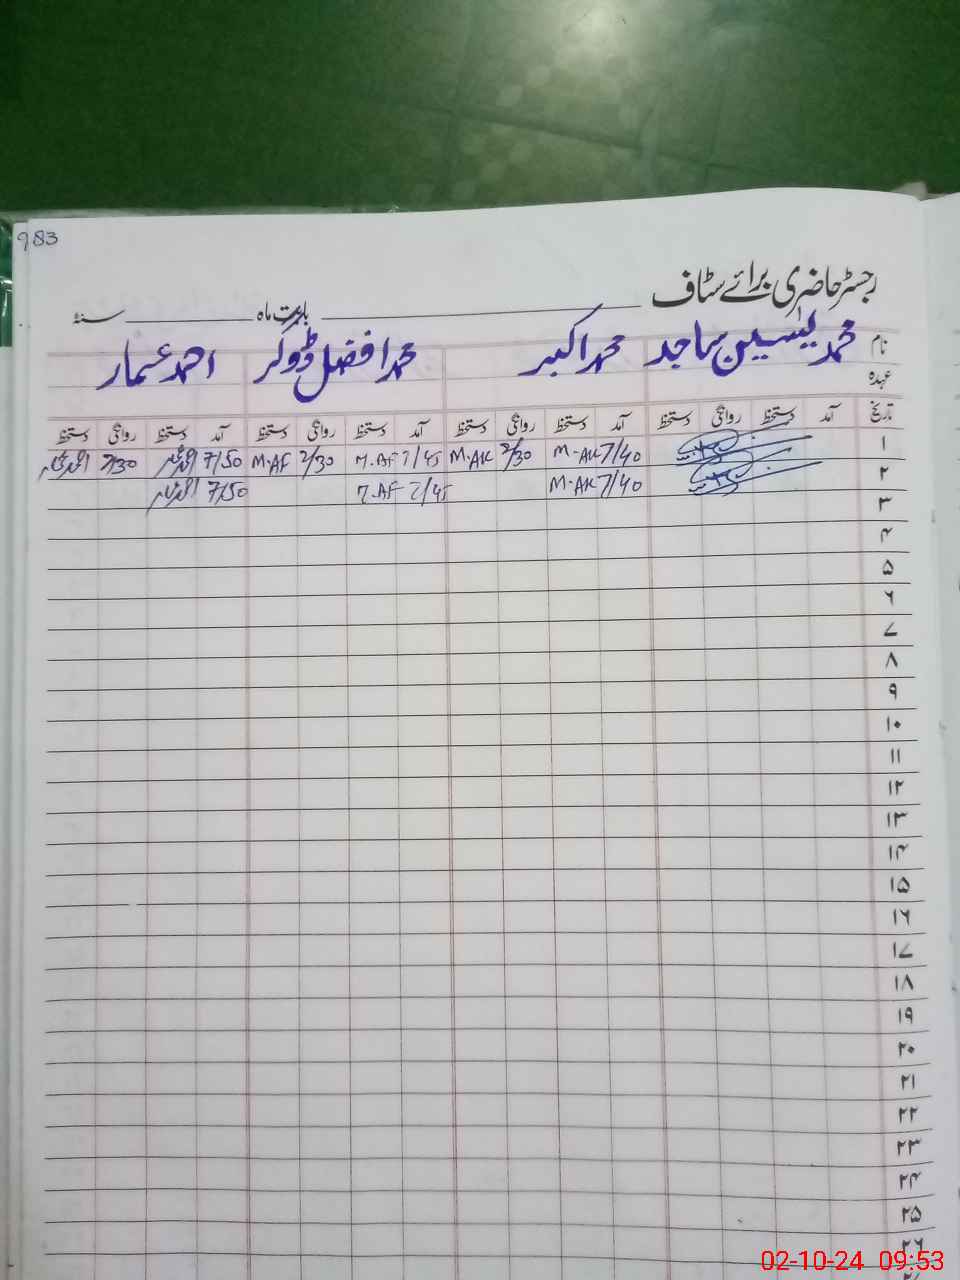 983
رجسٹر حاضری برائے سٹاف
بابت ماہ سنہ
نام محمد یٰسین ساجد محمد اکبر محمد افضل ڈوگر احمد عمار
عہدہ
تاریخ آمد دستخط روانگی دستخط آمد دستخط روانگی دستخط آمد دستخط روانگی دستخط آمد دستخط روانگی دستخط
۱ 7/40 M.AK 2/30 M.AK 7/45 M.AF 2/30 M.AF 7/50 احمد عمار 2/30 احمد عمار
۲ 7/40 M.AK 7/45 M.AF 7/50 احمد عمار
۳
۴
۵
۶
۷
۸
۹
۱۰
۱۱
۱۲
۱۳
۱۴
۱۵
۱۶
۱۷
۱۸
۱۹
۲۰
۲۱
۲۲
۲۳
۲۴
۲۵
۲۶
02-10-24 09:53